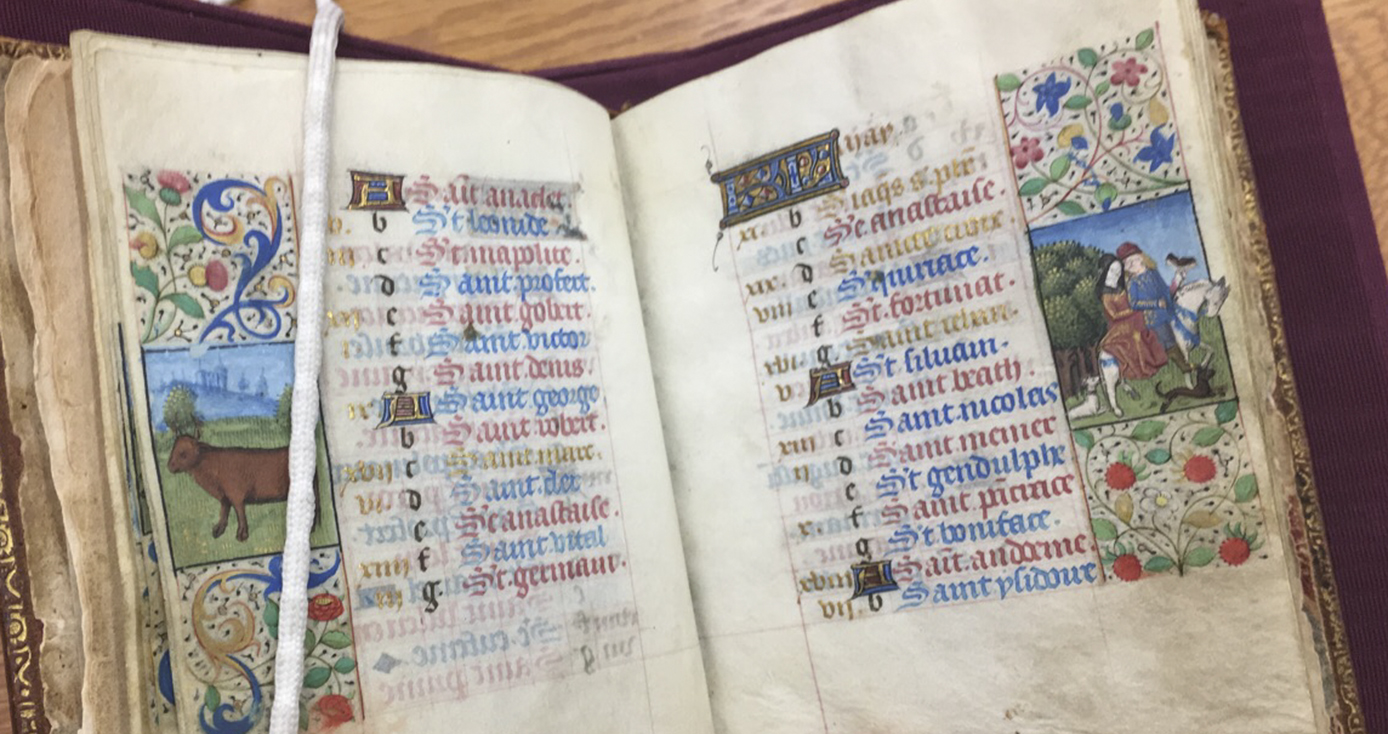 A Sait anaclet
b St leonide
c St mapplice.
d Saint profert.
e Saint gobert.
f Saint victor
g Saint denis.
A Saint george
b Saint robert.
xviii c Saint marc.
vi d Saint clet
e Ste anastaise.
xiiii f Saint vital
iii g St germain.
May
xi b S iaqs s. ph
c Ste anastaise.
xix d Sainte croix
viii e St quiriace.
f St fortunat.
xvi g Saint iehan.
v A St siluain.
b Saint beath.
xiii c Saint nicolas
ii d Saint memer
e St gendulphe
x f Saint pierace
g St boniface.
xviii A Sait andoeme.
vii b Saint ysidore